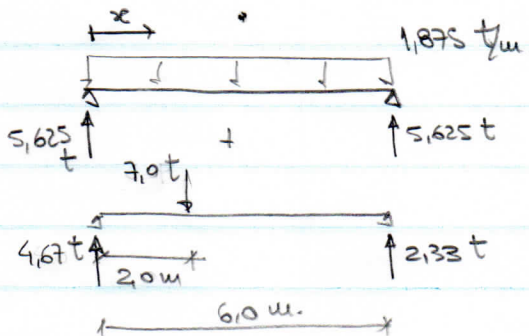 x
1,875 t/m
5,625 t
5,625 t
+
7,0 t
4,67 t
2,33 t
2,0 m
6,0 m.